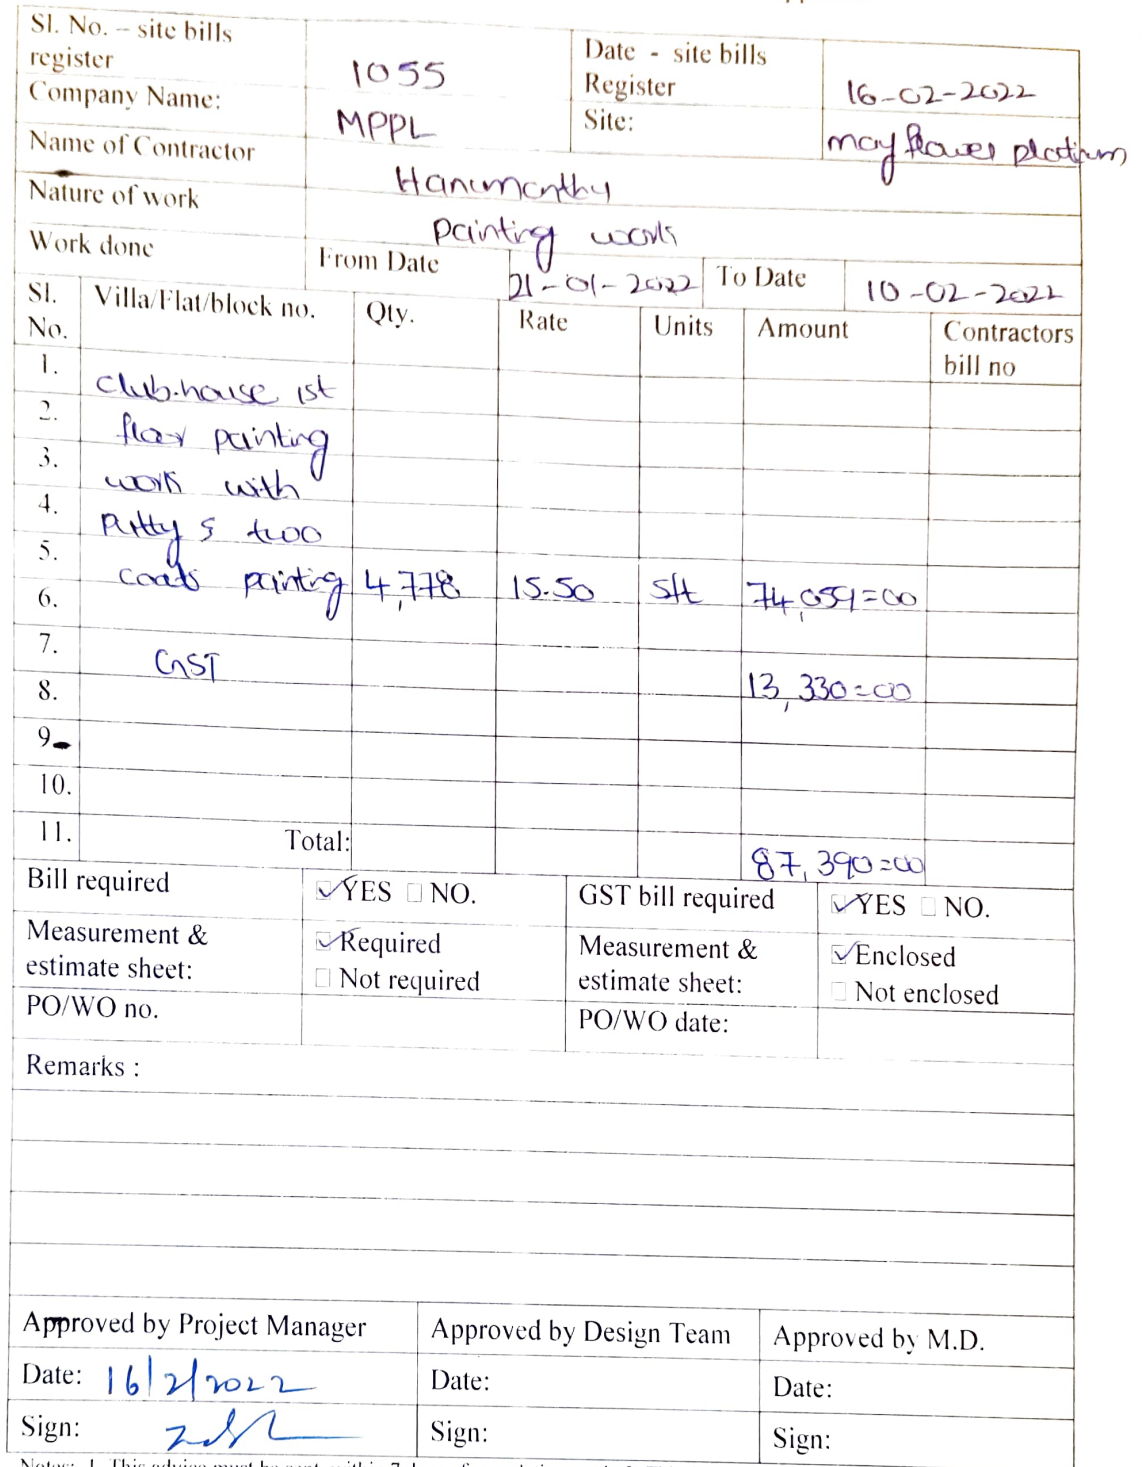 Sl. No. – site bills register 1055 Date - site bills Register 16-02-2022
Company Name: MPPL Site: mayflower platinum
Name of Contractor Hanumanthu
Nature of work painting work
Work done From Date 21-01-2022 To Date 10-02-2022
Sl. No. Villa/Flat/block no. Qty. Rate Units Amount Contractors bill no
1. club.house 1st
2. floor painting
3. work with
4. Putty & two
5. coats painting 4,778 15.50 sft 74,059=00
6.
7. GST 13,330=00
8.
9.
10.
11. Total: 87,390=00
Bill required YES NO. GST bill required YES NO.
Measurement & estimate sheet: Required Not required Measurement & estimate sheet: Enclosed Not enclosed
PO/WO no. PO/WO date:
Remarks :
Approved by Project Manager Approved by Design Team Approved by M.D.
Date: 16/2/2022 Date: Date:
Sign: Sign: Sign: